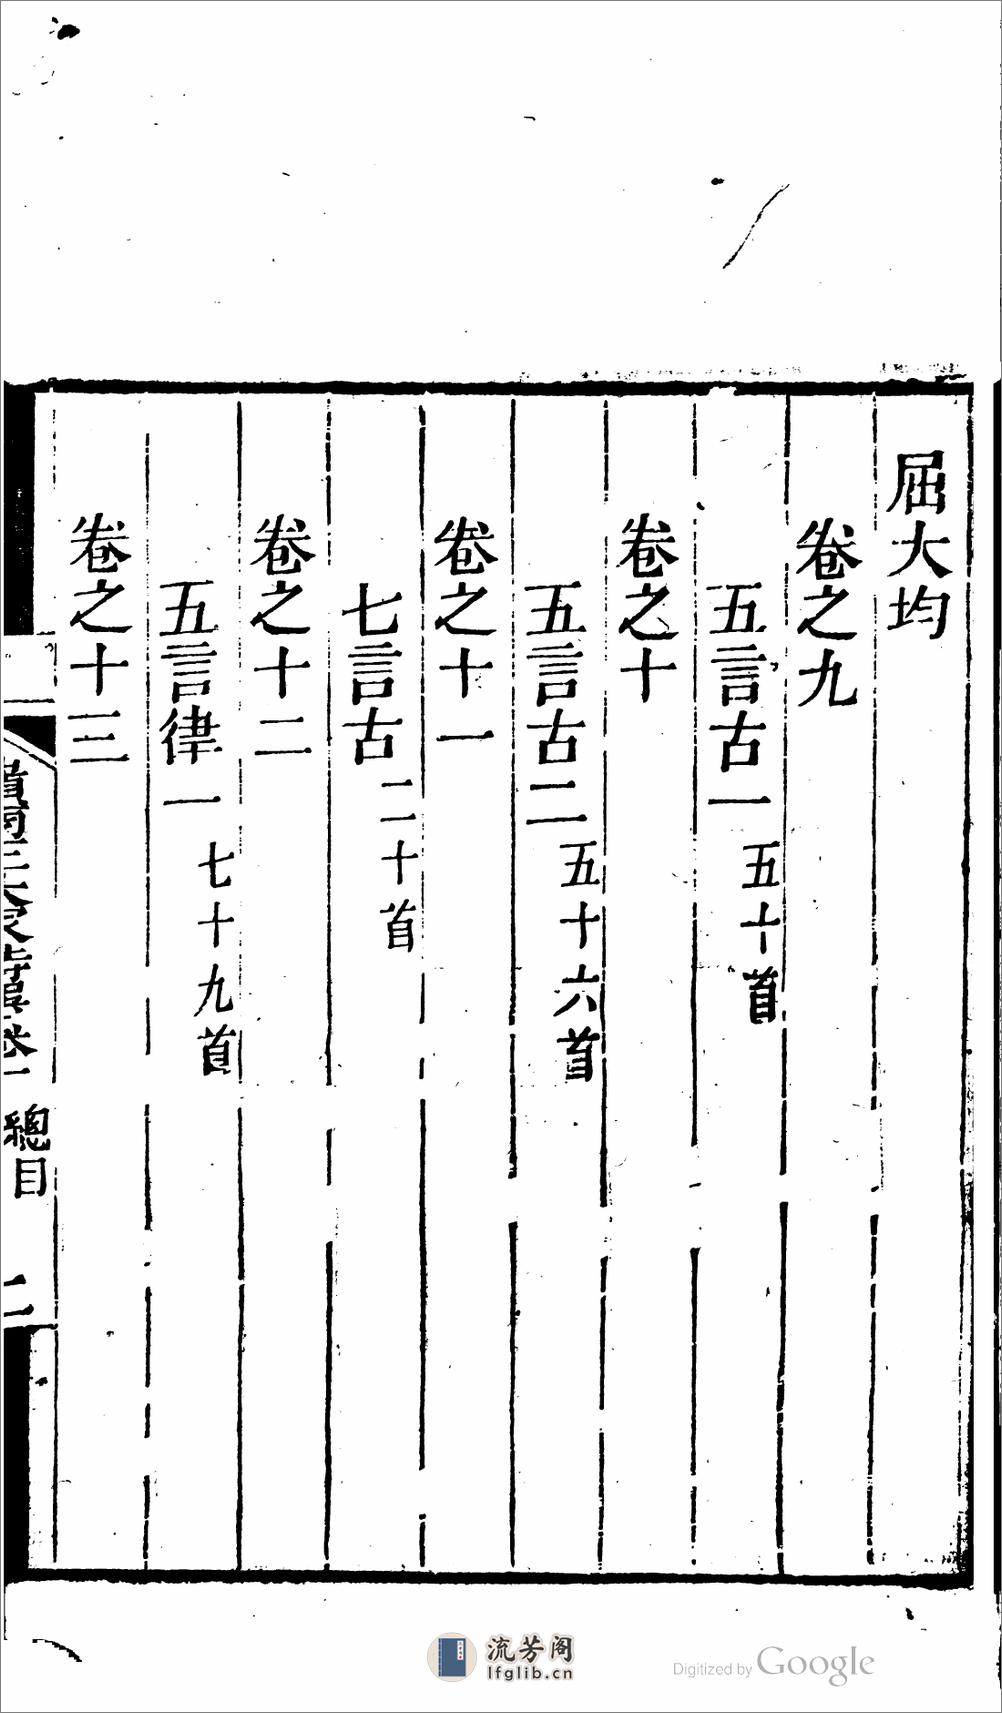 屈大均
卷之九
五言古一 五十首
卷之十
五言古二 五十六首
卷之十一
七言古 二十首
卷之十二
五言律一 七十九首
卷之十三
總目
二
流芳阁
lfglib.cn
Digitized by Google